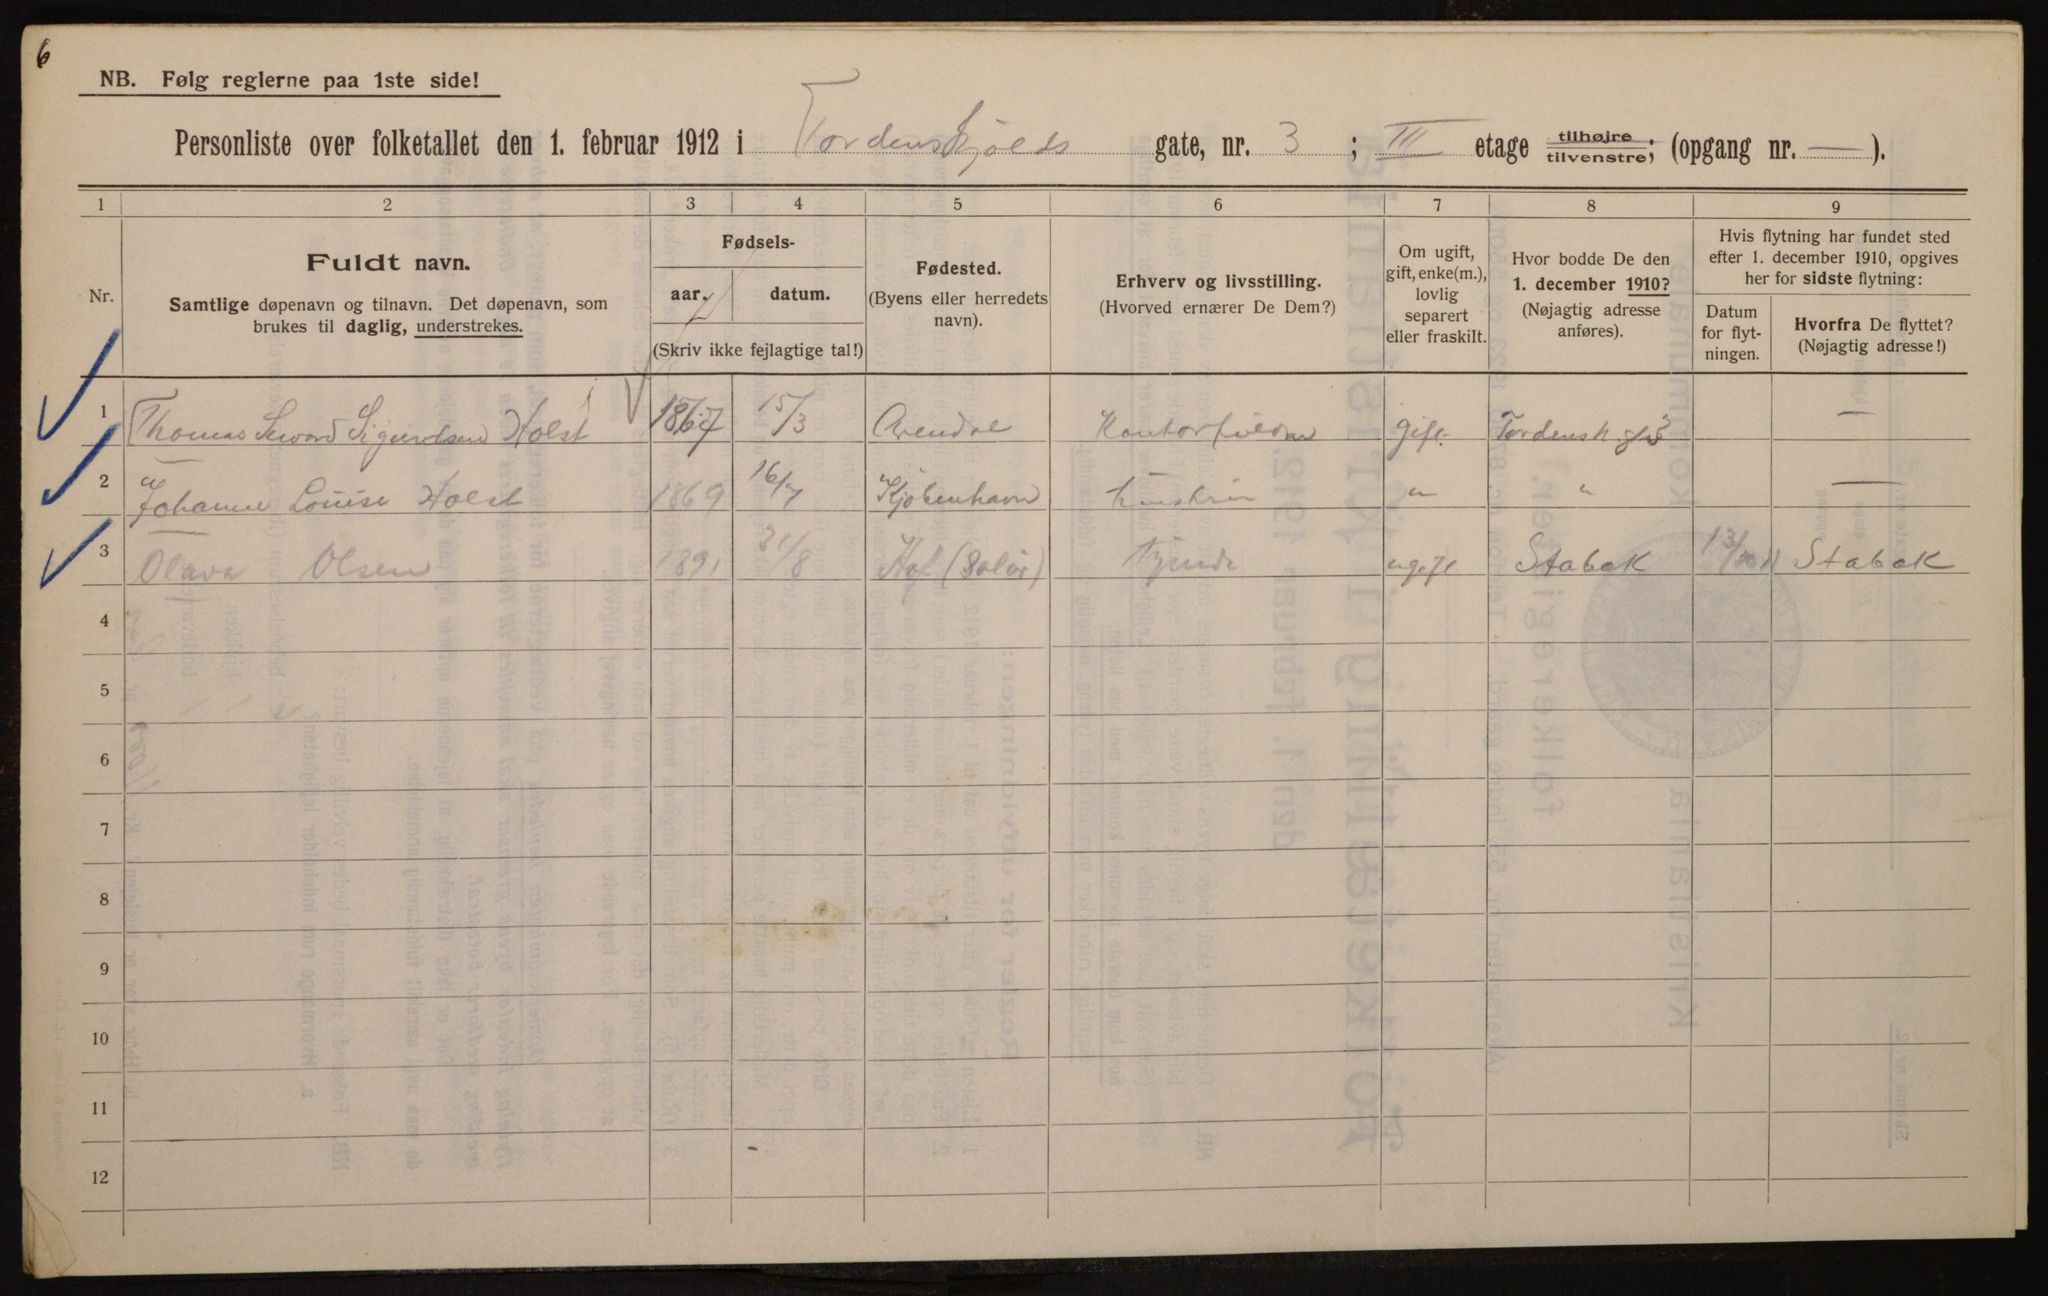 6
NB. Følg reglerne paa 1ste side!
Personliste over folketallet den 1. februar 1912 i Tordenskjolds gate, nr. 3 ; III etage tilhøjre tilvenstre; (opgang nr. — ).
1 2 3 4 5 6 7 8 9
Nr.
Fuldt navn.
Samtlige døpenavn og tilnavn. Det døpenavn, som
brukes til daglig, understrekes.
Fødsels-
aar. datum.
(Skriv ikke fejlagtige tal!)
Fødested.
(Byens eller herredets
navn).
Erhverv og livsstilling.
(Hvorved ernærer De Dem?)
Om ugift,
gift, enke(m.),
lovlig
separert
eller fraskilt.
Hvor bodde De den
1. december 1910?
(Nøjagtig adresse
anføres).
Hvis flytning har fundet sted
efter 1. december 1910, opgives
her for sidste flytning:
Datum
for flyt-
ningen.
Hvorfra De flyttet?
(Nøjagtig adresse!)
1 Thomas Holst 15/3 Arendal Gift Tordensk g 3 —
2 Johanne Louise Holst 1869 16/7 Kjøbenhavn " " —
3 Olava Olsen 1891 21/8 Hof (Solør) ugift Stabæk Stabæk
4
5
6
7
8
9
10
11
12